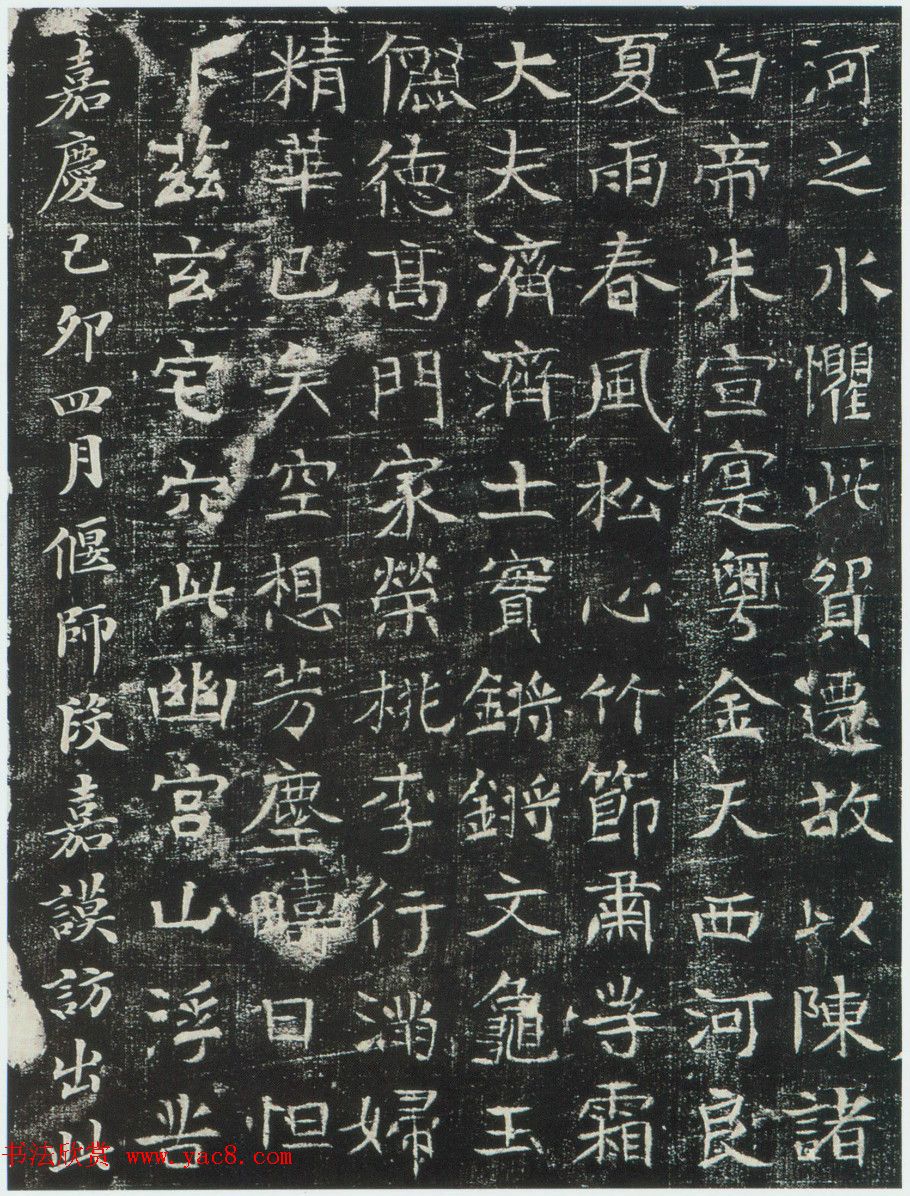 河之水懼此貿遷故以陳諸
白帝朱宣寔粵金天西河良
夏雨春風松心竹節肅等霜
大夫濟濟士實鏘鏘文龜玉
儷德髙門家榮桃李行滿婦
精華已矣空想芳塵日怛
下茲玄宅穴此幽宮山浮昔
嘉慶己卯四月偃師段嘉謨訪出此
书法欣赏 www.yac8.com